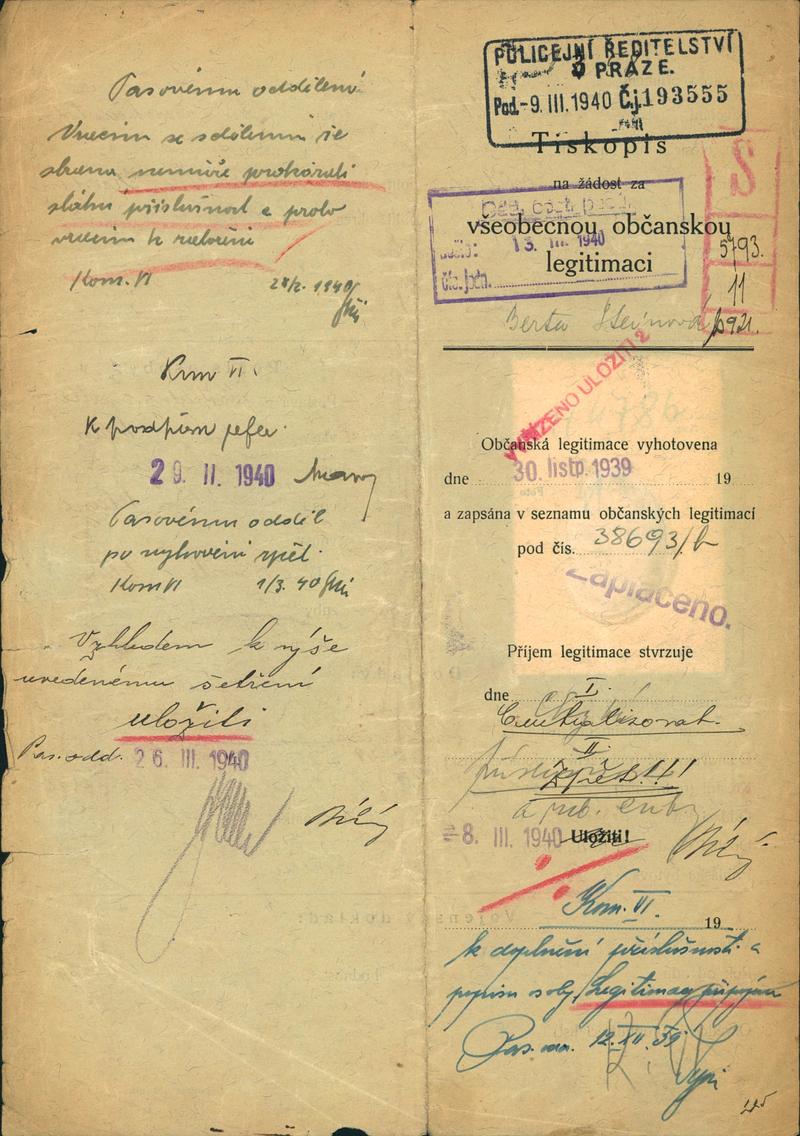 Pasovému oddělení
Vracím se sdělením že
strana nemůže prokázati
státní příslušnost a proto
vracím k
Kom. VI 1940
Kom VI.
K podpisu
29. II. 1940
Pasovému odděl
po vyhovění zpět.
Kom VI 1/3. 40
Vzhledem k výše
uvedenému šetření
uložiti
Pas. odd. 26. III. 1940
Bílý
POLICEJNÍ ŘEDITELSTVÍ
V PRAZE.
Pod. -9. III. 1940 Čj. 193555
Tiskopis
na žádost za
všeobecnou občanskou
13. III. 1940
legitimaci
čís. jedn.
S
5793.
11
Berta Steinová
VYŘÍZENO ULOŽITI 2
Občanská legitimace vyhotovena
dne 30. listp. 1939 19
a zapsána v seznamu občanských legitimací
pod čís. 38693/
Zaplaceno.
Příjem legitimace stvrzuje
dne I.
Centralisovat.
II.
Zpět!!!
-8. III. 1940 Uložiti!
Bílý
Kom. VI. 19
k doplnění příslušnosti a
popisu osoby. Legitimace připojena
Pas. 12. XII. 39